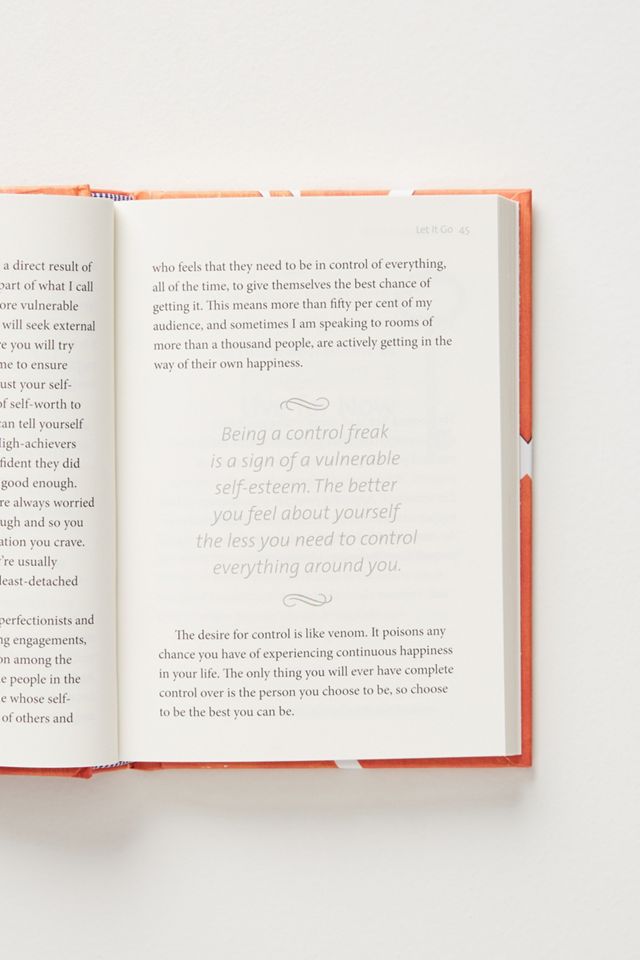 a direct result of
part of what I call
ore vulnerable
will seek external
e you will try
me to ensure
ust your self-
of self-worth to
can tell yourself
High-achievers
fident they did
good enough.
re always worried
ugh and so you
ation you crave.
're usually
least-detached
perfectionists and
ng engagements,
on among the
e people in the
e whose self-
of others and
Let It Go 45
who feels that they need to be in control of everything,
all of the time, to give themselves the best chance of
getting it. This means more than fifty per cent of my
audience, and sometimes I am speaking to rooms of
more than a thousand people, are actively getting in the
way of their own happiness.
Being a control freak
is a sign of a vulnerable
self-esteem. The better
you feel about yourself
the less you need to control
everything around you.
The desire for control is like venom. It poisons any
chance you have of experiencing continuous happiness
in your life. The only thing you will ever have complete
control over is the person you choose to be, so choose
to be the best you can be.